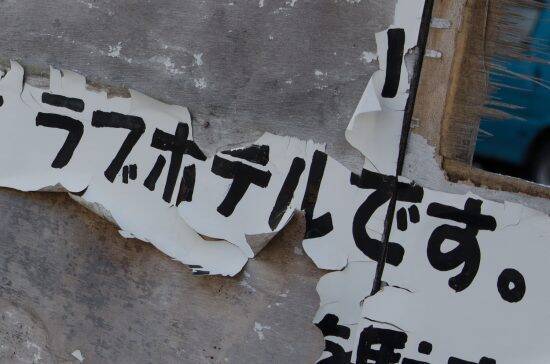 ラブホテルです。